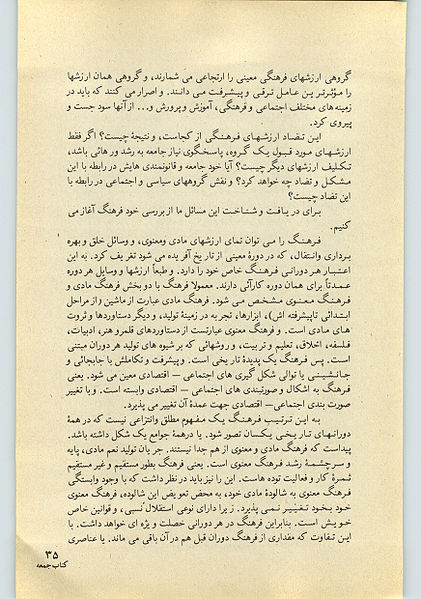 گروهی ارزشهای فرهنگی معینی را ارتجاعی می شمارند، و گروهی همان ارزشها
را مؤثرترین عامل ترقی و پیشرفت می دانند. و اصرار می کنند که باید در
زمینه های مختلف اجتماعی و فرهنگی، آموزش و پرورش و... از آنها سود جست و
پیروی کرد.
این تضاد ارزشهای فرهنگی از کجاست، و نتیجهٔ چیست؟ اگر فقط
ارزشهای مورد قبول یک گروه، پاسخگوی نیاز جامعه به رشد و رهائی باشد،
تکلیف ارزشهای دیگر چیست؟ آیا خود جامعه و قانونمندی هایش در رابطه با این
مشکل و تضاد چه خواهد کرد؟ و نقش گروههای سیاسی و اجتماعی در رابطه با
این تضاد چیست؟
برای دریافت و شناخت این مسائل ما از بررسی خود فرهنگ آغاز می
کنیم.
فرهنگ را می توان تمای ارزشهای مادی ومعنوی، و وسائل خلق و بهره
برداری وانتقال، که در دورهٔ معینی از تاریخ آفریده می شود تعریف کرد. به این
اعتبار هر دورانی فرهنگ خاص خود را دارد. و طبعاً ارزشها و وسایل هر دوره
عمدتاً برای همان دوره کارآئی دارند. معمولا فرهنگ با دو بخش فرهنگ مادی و
فرهنگ معنوی مشخص می شود. فرهنگ مادی عبارت از ماشین (از مراحل
ابتدائی تاپیشرفته اش)، ابزارها، تجربه در زمینهٔ تولید، و دیگر دستاوردها و ثروت
های مادی است. و فرهنگ معنوی عبارتست از دستاوردهای قلمرو هنر، ادبیات،
فلسفه، اخلاق، تعلیم و تربیت، و روشهائی که بر شیوه های تولید هر دوران مبتنی
است. پس فرهنگ یک پدیدهٔ تاریخی است. و پیشرفت و تکاملش با جابجائی و
جانشینی یا توالی شکل گیری های اجتماعی — اقتصادی معین می شود. یعنی
فرهنگ به اشکال و صورتبندی های اجتماعی — اقتصادی وابسته است. و با تغییر
صورت بندی اجتماعی— اقتصادی جهت عمدهٔ آن تغییر می پذیرد.
به این ترتیب فرهنگ یک مفهوم مطلق وانتزاعی نیست که در همهٔ
دورانهای تاریخی یکسان تصور شود. یا درهمهٔ جوامع یک شکل داشته باشد.
پیداست که فرهنگ مادی و معنوی از هم جدا نیستند. جریان تولید نعم مادی، پایه
و سرچشمهٔ رشد فرهنگ معنوی است. یعنی فرهنگ بطور مستقیم و غیر مستقیم
ثمرهٔ کار و فعالیت توده هاست. این را نیز باید در نظر داشت که با وجود وابستگی
فرهنگ معنوی به شالودهٔ مادی خود، به محض تعویض این شالوده، فرهنگ معنوی
خود بخود تغییر نمی پذیرد. زیرا دارای نوعی استقلال نسبی، و قوانین خاص
خویش است. بنابراین فرهنگ در هر دورانی خصلت و یژه ای خواهد داشت. با
این تفاوت که مقداری از فرهنگ دوران قبل هم در آن باقی می ماند. یا عناصری
۳۵
کتاب جمعه